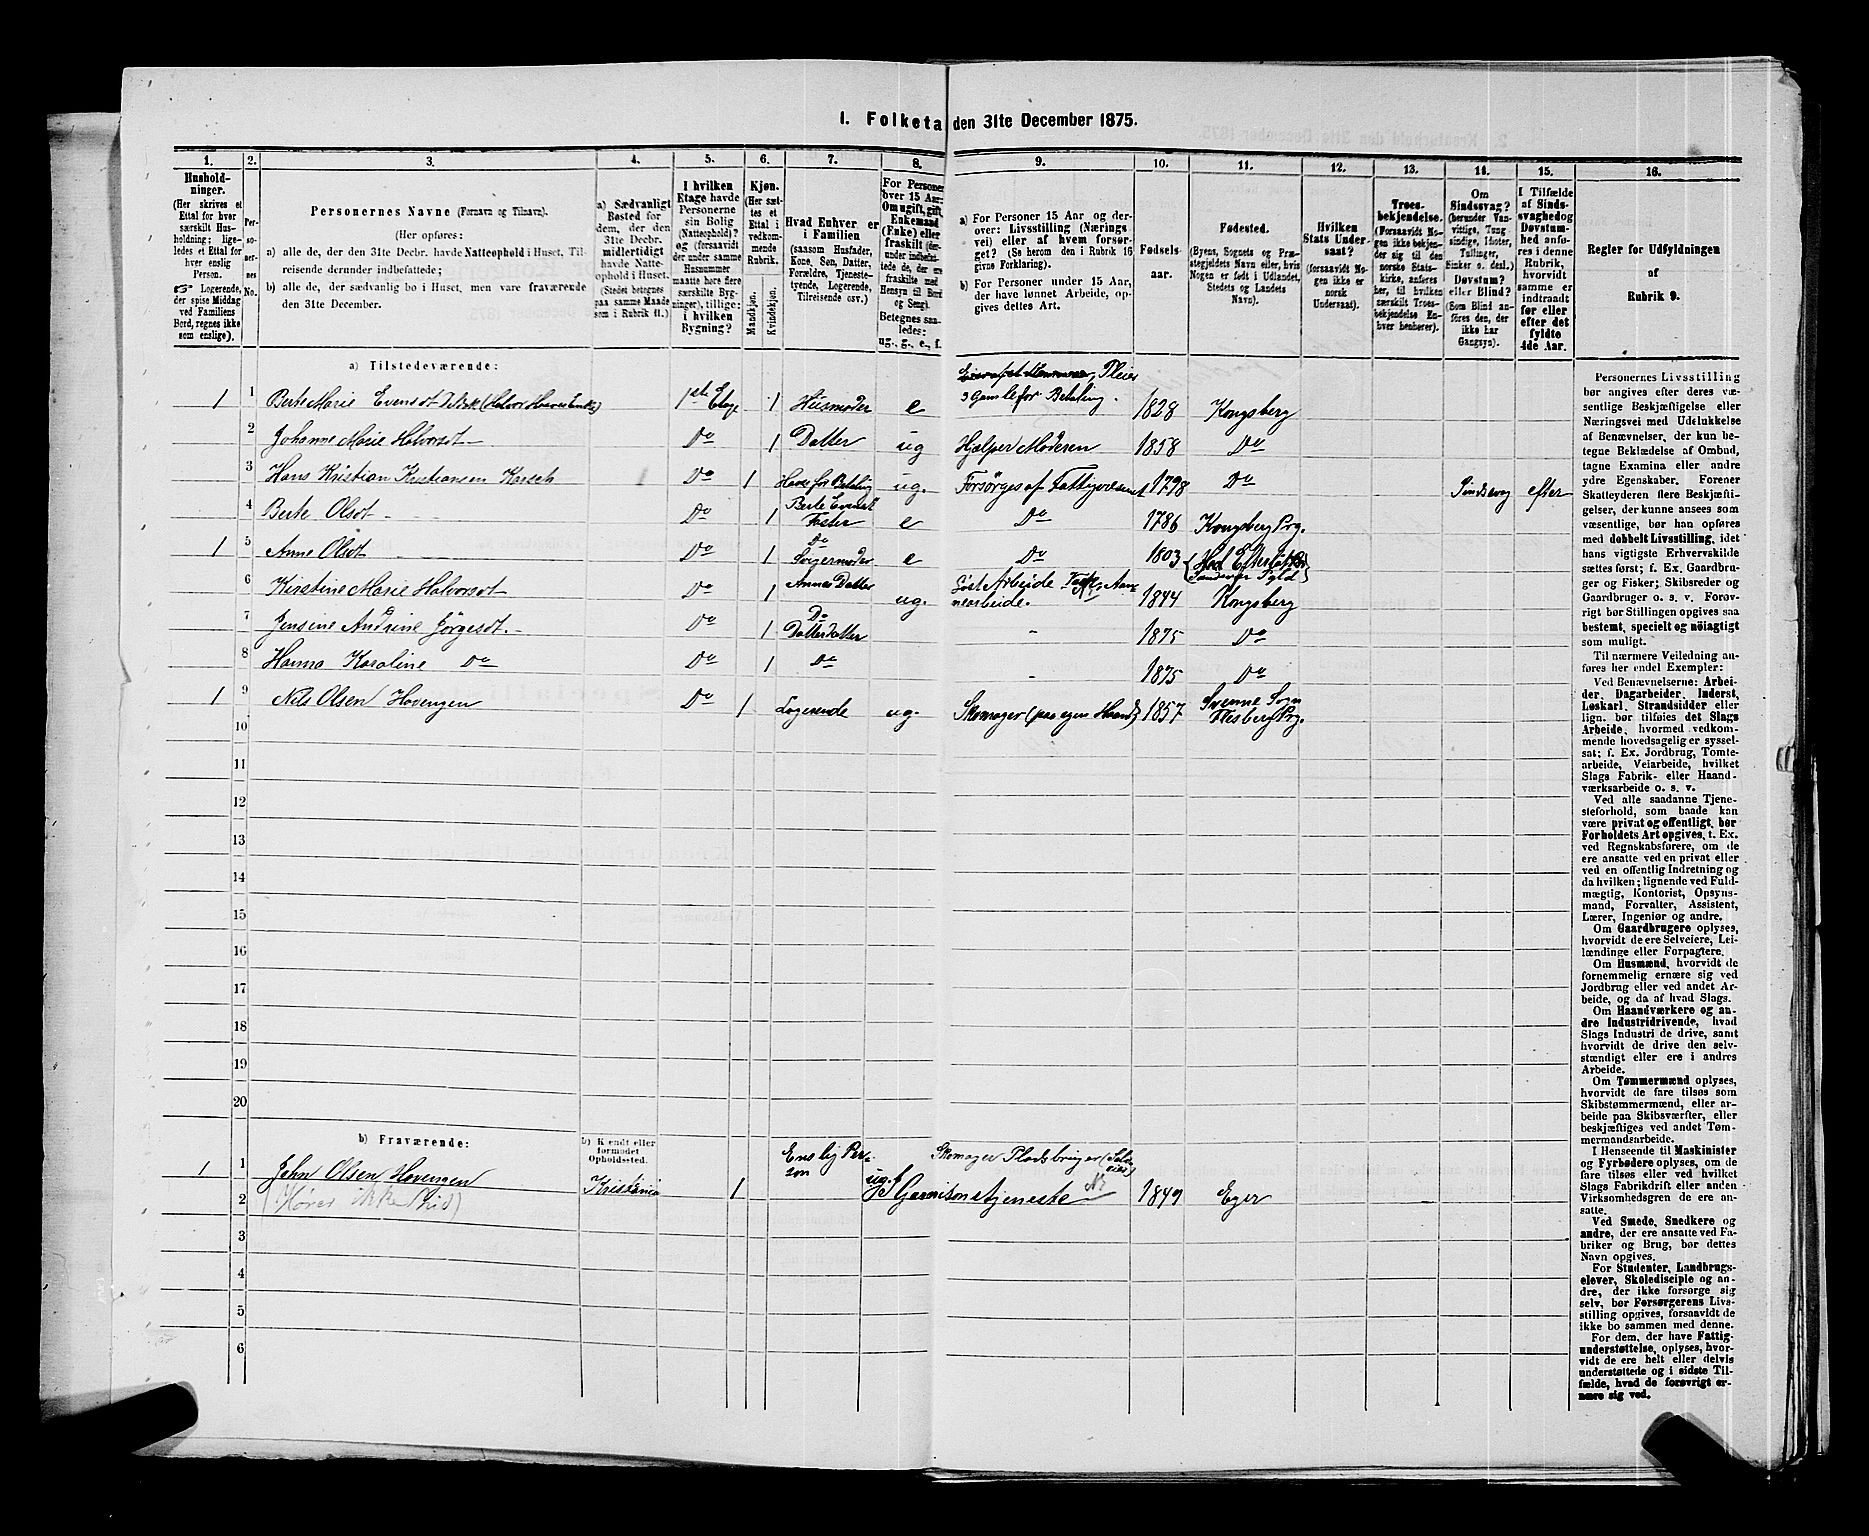 1. Folketa den 31te December 1875.
1. 2. 3. 4. 5. 6. 7. 8. 9. 10. 11. 12. 13. 14. 15. 16.
Hushold-
ninger.
(Her skrives et
Ettal for hver
særskilt Hus-
holdning; lige-
ledes et Ettal for
hver enslig
Person.
Logerende,
der spise Middag
ved Familiens
Bord, regnes ikke
som enslige).
Per-
so-
ner-
nes
No.
Personernes Navne (Fornavn og Tilnavn).
(Her opføres:
a) alle de, der den 31te Decbr. havde Natteophold i Huset, Til-
reisende derunder indbefattede;
b) alle de, der sædvanlig bo i Huset, men vare fraværende
den 31te December.
a) Sædvanligt
Bosted for
dem, der den
31te Decbr.
midlertidigt
havde Natte-
ophold i Huset.
(Stedet betegnes
paa samme Maade
som i Rubrik 11.)
I hvilken
Etage havde
Personerne
sin Bolig
(Natteophold)?
og (forsaavidt
der under samme
Husnummer
maatte høre flere
særskilte Byg-
ninger), tillige:
i hvilken
Bygning?
Kjøn.
(Her sæt-
tes et
Ettal i
vedkom-
mende
Rubrik.
Mandkjøn.
Kvindekjøn.
Hvad Enhver er
i Familien
(saasom Husfader,
Kone, Søn, Datter,
Forældre, Tjeneste-
tyende, Logerende,
Tilreisende osv.)
For Personer
over 15 Aar:
Om ugift, gift,
Enkemand
(Enke) eller
fraskilt (der-
under indbefat-
tede de, der ere
fraskilte med
Hensyn til Bord
og Seng).
Betegnes saa-
ledes:
ug., g., e., f.
a) For Personer 15 Aar og der-
over: Livsstilling (Nærings-
vei) eller af hvem forsør-
get? (Se herom den i Rubrik 16
givne Forklaring).
b) For Personer under 15 Aar,
der have lønnet Arbeide, op-
gives dettes Art.
Fødsels-
aar.
Fødested.
(Byens, Sognets og Præ-
stegjeldets Navn eller, hvis
Nogen er født i Udlandet,
Stedets og Landets
Navn).
Hvilken
Stats Under-
saat?
(forsaavidt No-
gen ikke er
norsk
Undersaat).
Troes-
bekjendelse.
(Forsaavidt No-
gen ikke bekjen-
der sig til den
norske Stats-
kirke, anføres
her, til hvilken
særskilt Troes-
bekjendelse En-
hver henhører).
Om
Sindssvag?
(herunder Van-
vittige, Tung-
sindige, Idioter,
Tullinger,
Sinker o. desl.)
Døvstum?
eller Blind?
(Som Blind an-
føres den, der
ikke har
Gangsyn).
I Tilfælde
af Sinds-
svaghed og
Døvstum-
hed anfø-
res i denne
Rubrik,
hvorvidt
samme er
indtraadt
før eller
efter det
fyldte
4de Aar.
Regler for Udfyldningen
af
Rubrik 9.
a) Tilstedeværende:
Pleier
1 1 Berte Marie Evensdt (Halvor Enke) 1ste Etage 1 Husmoder e 3 Gamle for Betaling. 1828 Kongsberg
2 Johanne Marie Halvorsdt Do 1 Datter ug Hjælper Moderen 1858 Do
3 Hans Kristian Kristiansen Do 1 Haves for Betaling ug. Forsørges af Fattigvæsenet 1798 Do Sindssvag efter
4 Berte Olsdt Do 1 Berte Evensdt Faster e Do 1786 Kongsberg Prg.
1 5 Anne Olsdt Do 1 Do e Do 1803
6 Kirstine Marie Halvorsdt Do 1 Annes Datter ug. Løst Arbeide 1844 Kongsberg
7 Jensine Andrine Jørgesdt. Do 1 Do Datterdatter 1875 Do
8 Hanna Karoline Do Do 1 Do 1875 Do
1 9 Nils Olsen Hovengen Do 1 Logerende ug. Skomager (paa egen Haand) 1857 Svenne Sogn Flesberg Prg.
10
11
12
13
14
15
16
17
18
19
20
b) Fraværende:
b) Kjendt eller
formodet
Opholdssted.
1 1 John Olsen Hovengen Kristiania 1 Enslig Person ug. Skomager Pladsbruger Garnisonstjeneste 1849 Eger
2 (Hører ikke hid)
3
4
5
6
Personernes Livsstilling
bør angives efter deres væ-
sentlige Beskjæftigelse eller
Næringsvei med Udelukkelse
af Benævnelser, der kun be-
tegne Beklædelse af Ombud,
tagne Examina eller andre
ydre Egenskaber. Forener
Skatteyderen flere Beskjæfti-
gelser, der kunne ansees som
væsentlige, bør han opføres
med dobbelt Livsstilling, idet
hans vigtigste Erhvervskilde
sættes først; f. Ex. Gaardbru-
ger og Fisker; Skibsreder og
Gaardbruger o. s. v. Forøv-
rigt bør Stillingen opgives saa
bestemt, specielt og nöiagtigt
som muligt.
Til nærmere Veiledning an-
føres her endel Exempler:
Ved Benævnelserne: Arbei-
der, Dagarbeider, Inderst,
Løskarl, Strandsidder eller
lign. bør tilføies det Slags
Arbeide, hvormed vedkom-
mende hovedsagelig er syssel-
sat; f. Ex. Jordbrug, Tomte-
arbeide, Veiarbeide, hvilket
Slags Fabrik- eller Haand-
værksarbeide o. s. v.
Ved alle saadanne Tjene-
steforhold, som baade kan
være privat og offentligt, bør
Forholdets Art opgives, t. Ex.
ved Regnskabsførere, om de
ere ansatte ved en privat eller
ved en offentlig Indretning og
da hvilken; lignende ved Fuld-
mægtig, Kontorist, Opsyns-
mand, Forvalter, Assistent,
Lærer, Ingeniør og andre.
Om Gaardbrugere oplyses,
hvorvidt de ere Selveiere, Lei-
lændinge eller Forpagtere.
Om Husmænd, hvorvidt de
fornemmelig ernære sig ved
Jordbrug eller ved andet Ar-
beide, og da af hvad Slags.
Om Haandværkere og an-
dre Industridrivende, hvad
Slags Industri de drive, samt
hvorvidt de drive den selv-
stændigt eller ere i andres
Arbeide.
Om Tømmermænd oplyses,
hvorvidt de fare tilsøs som
Skibstømmermænd, eller ar-
beide paa Skibsværfter, eller
beskjæftiges ved andet Tøm-
mermandsarbeide.
I Henseende til Maskinister
og Fyrbødere oplyses, om de
fare tilsøs eller ved hvilken
Slags Fabrikdrift eller anden
Virksomhedsgren de ere an-
satte.
Ved Smede, Snedkere og
andre, der ere ansatte ved Fa-
briker og Brug, bør dettes
Navn opgives.
For Studenter, Landbrugs-
elever, Skoledisciple og an-
dre, der ikke forsørge sig
selv, bør Forsørgerens Livs-
stilling opgives, forsaavidt de
ikke bo sammen med denne.
For dem, der have Fattig-
understøttelse, oplyses, hvor-
vidt de ere helt eller delvis
understøttede og i sidste Til-
fælde, hvad de forøvrigt er-
nære sig ved.